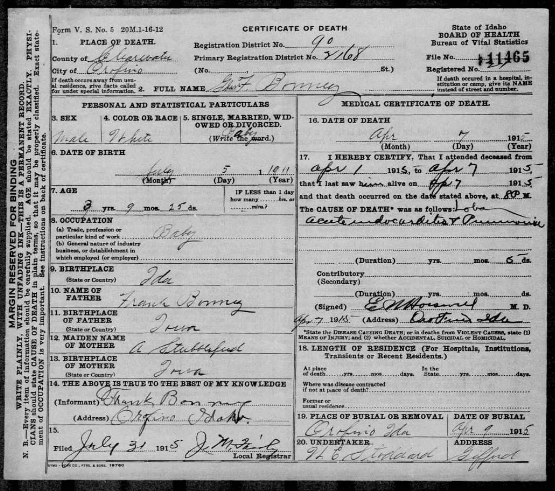 Form V. S. No. 5 20M.1-16-12
CERTIFICATE OF DEATH
State of Idaho
BOARD OF HEALTH
Bureau of Vital Statistics
1. PLACE OF DEATH.
County of Clearwater
City of Orofino
If death occurs away from usual residence, give facts called for under special information.
Registration District No. 90
Primary Registration District No. 2168
(No. St.)
File No. 11465
Registered No.
If death occurred in a hospital, institution or camp, give its NAME instead of street and number.
2. FULL NAME Bonney
MARGIN RESERVED FOR BINDING
WRITE PLAINLY, WITH UNFADING INK—THIS IS A PERMANENT RECORD.
N. B.—Every item of information should be carefully supplied. AGE should be stated EXACTLY. PHYSICIANS should state CAUSE OF DEATH in plain terms, so that it may be properly classified. Exact statement of OCCUPATION is very important. See instructions on back of certificate.
PERSONAL AND STATISTICAL PARTICULARS
3. SEX
Male
4. COLOR OR RACE
White
5. SINGLE, MARRIED, WIDOWED OR DIVORCED.
Baby
(Write the word.)
6. DATE OF BIRTH
July 5 1911
(Month) (Day) (Year)
7. AGE
3 yrs. 9 mos. 25 ds.
IF LESS than 1 day
how many hrs.
or min?
8. OCCUPATION
(a) Trade, profession or particular kind of work
Baby
(b) General nature of industry, business, or establishment in which employed (or employer)
9. BIRTHPLACE
(State or Country)
Ida
10. NAME OF FATHER
Frank Bonney
11. BIRTHPLACE OF FATHER
(State or Country)
Iowa
12. MAIDEN NAME OF MOTHER
A Stubblefield
13. BIRTHPLACE OF MOTHER
(State or Country)
Iowa
14. THE ABOVE IS TRUE TO THE BEST OF MY KNOWLEDGE
(Informant) Frank Bonney
(Address) Orofino Idaho.
15.
Filed July 31 1915
Local Registrar
MEDICAL CERTIFICATE OF DEATH.
16. DATE OF DEATH
Apr 7 1915
(Month) (Day) (Year)
17. I HEREBY CERTIFY, That I attended deceased from
Apr 1 1915, to Apr 7 1915
that I last saw him alive on Apr 7 1915
and that death occurred on the date stated above, at 8P M.
The CAUSE OF DEATH* was as follows: Lobar
Acute endocarditis & Pneumonia
(Duration) yrs. mos. 6 ds.
Contributory
(Secondary)
(Duration) yrs. mos. ds.
(Signed) M. D.
Apr 7 1915 (Address) Orofino Ida
*State the DISEASE CAUSING DEATH; or in deaths from VIOLENT CAUSES, state (1) MEANS OF INJURY; and (2) whether ACCIDENTAL, SUICIDAL OR HOMICIDAL.
18. LENGTH OF RESIDENCE (For Hospitals, Institutions, Transients or Recent Residents.)
At place of death yrs. mos. days. In the State yrs. mos. days.
Where was disease contracted if not at place of death?
Former or usual residence
19. PLACE OF BURIAL OR REMOVAL
Orofino Ida
DATE OF BURIAL
Apr 9 1915
20. UNDERTAKER
W E Stoddard
ADDRESS
Gifford